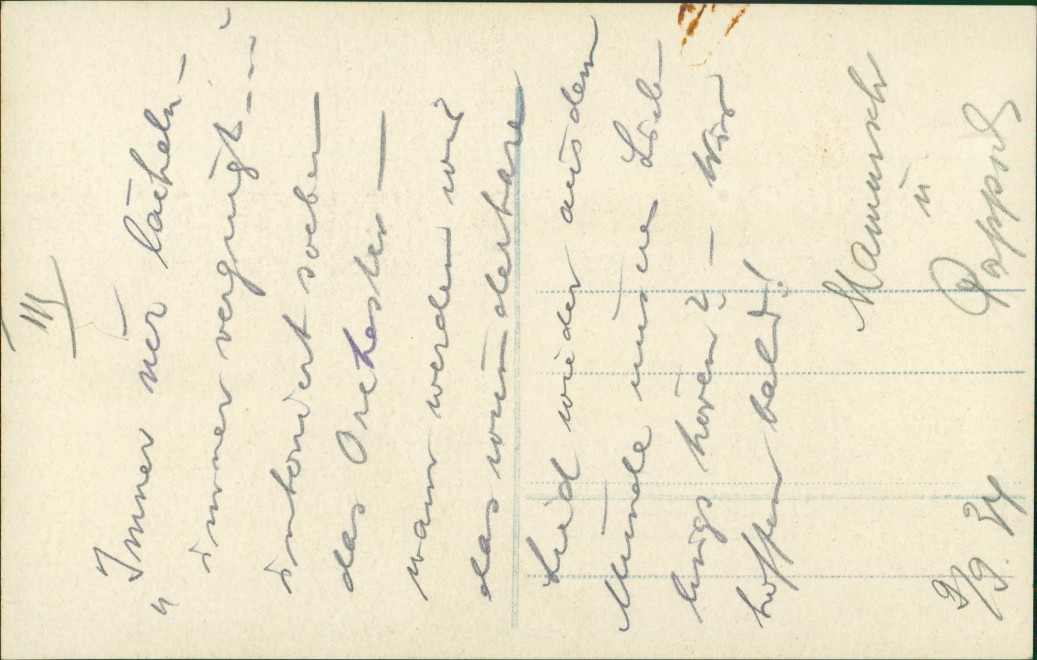 III
„Immer nur lächeln –
immer vergnügt –"
intoniert soeben
das Orchester —
wann werden wir
das wunderbare
Lied wieder aus dem
Munde unsres Lieb-
lings hören? – Wir
hoffen bald!
Mamusch
u
9/9. 34